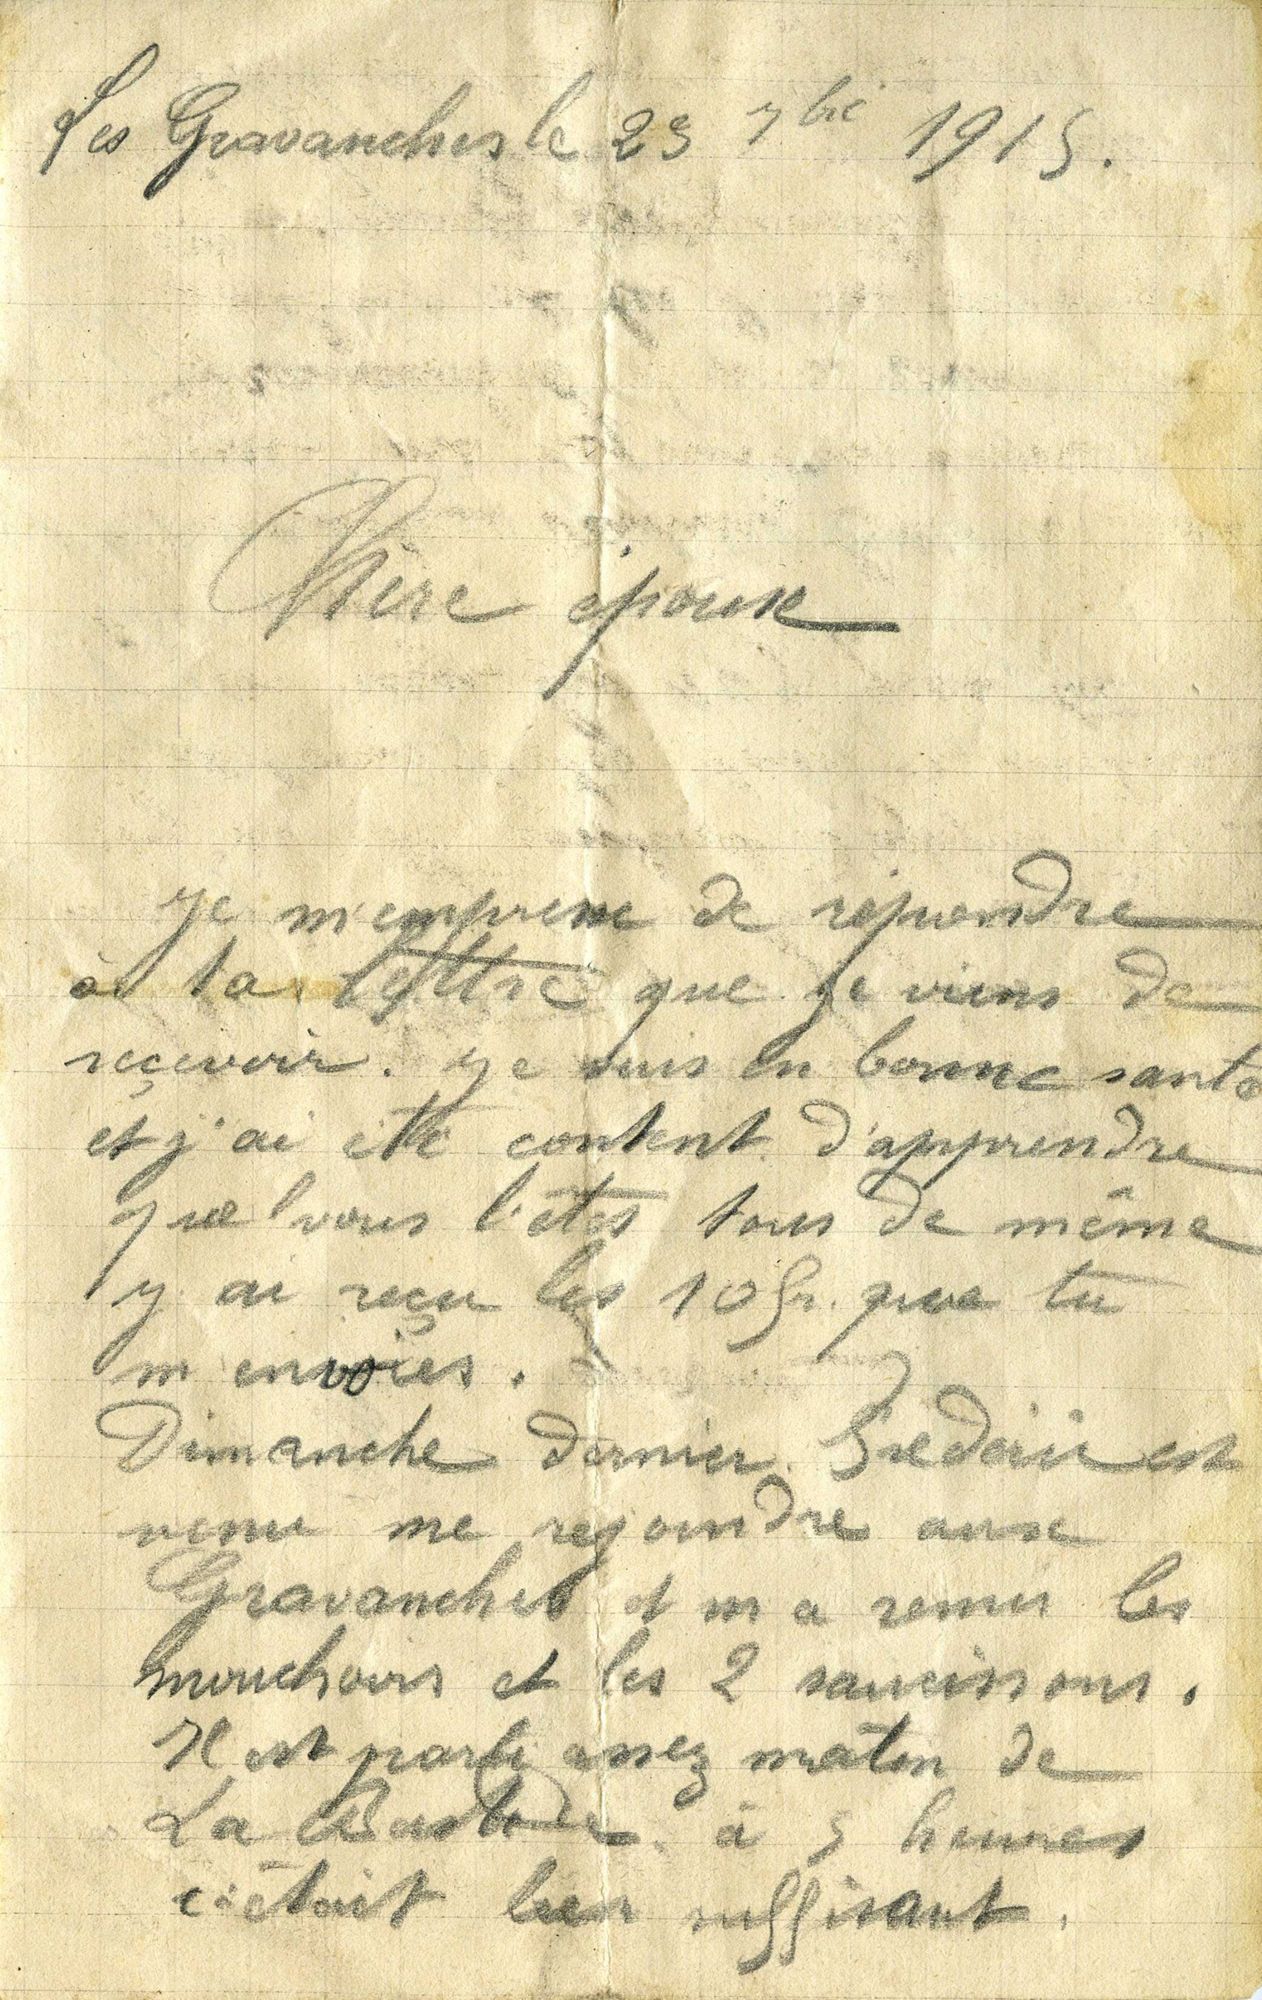 Les Gravanches le 23 7bre 1915.
Chère épouse
Je m'empresse de répondre
à ta lettre que je viens de
reçevoir. Je suis en bonne santé
et j'ai été content d'apprendre
que vous l'êtes tous de même
J ai reçu les 10 fr. que tu
m envoies.
Dimanche dernier Frédéric est
venu me rejoindre aux
Gravanches et m a remis les
mouchoirs et les 2 saucissons.
Il est parti assez matin de
La à 5 heures
c'était bien suffisant.